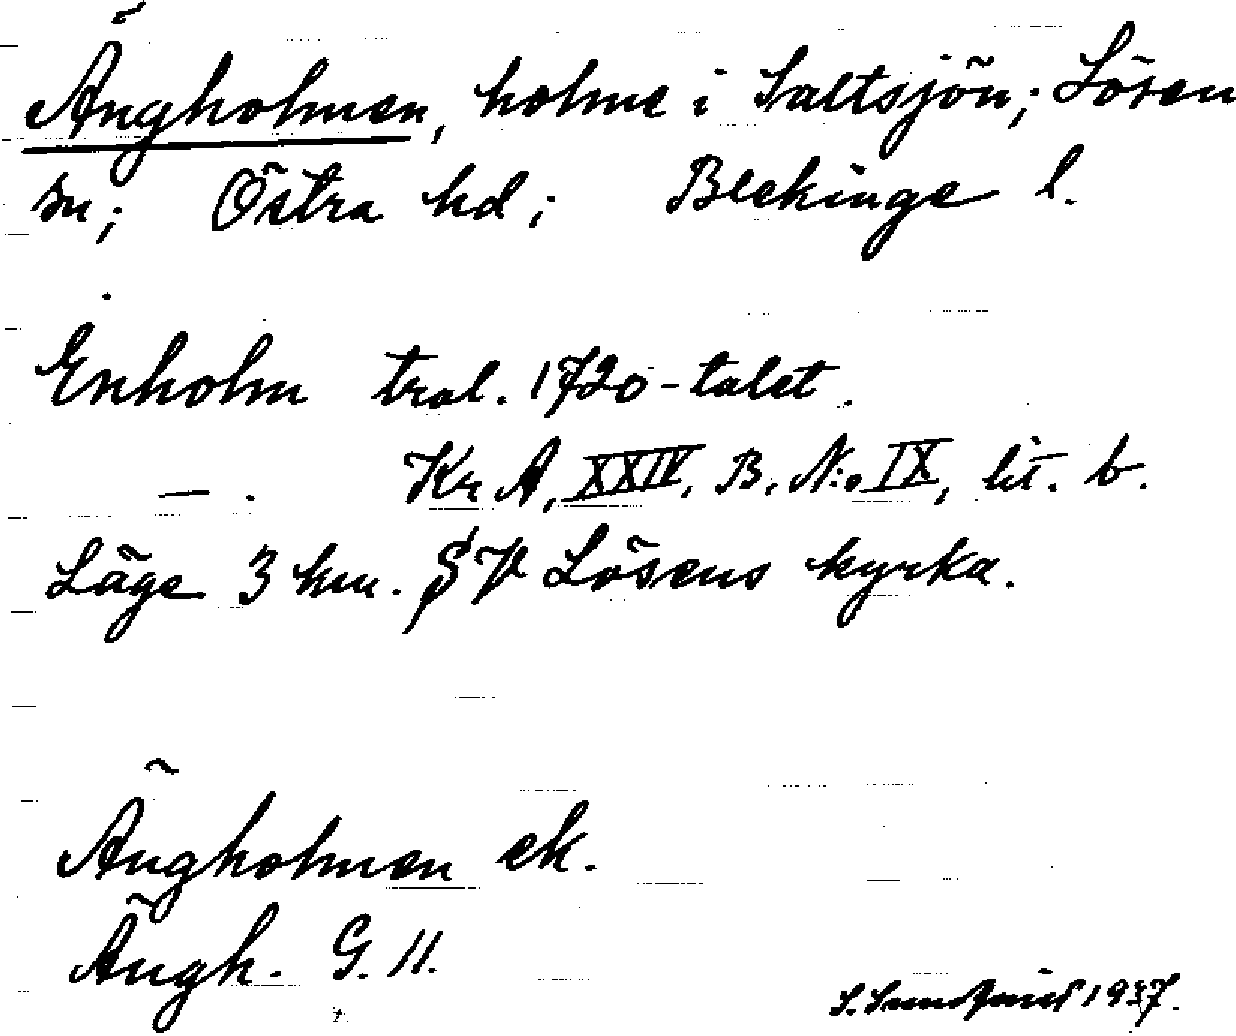 Ängholmen, holme i Saltsjön; Lösen
sn; Östra hd; Blekinge l.
Enholm trol. 1720-talet.
— . Kr A, XXIV, B. N:o IX, lit. b.
Läge 3 km. SV Lösens kyrka.
Ängholmen ek.
Ängh. G. 11.
1937.